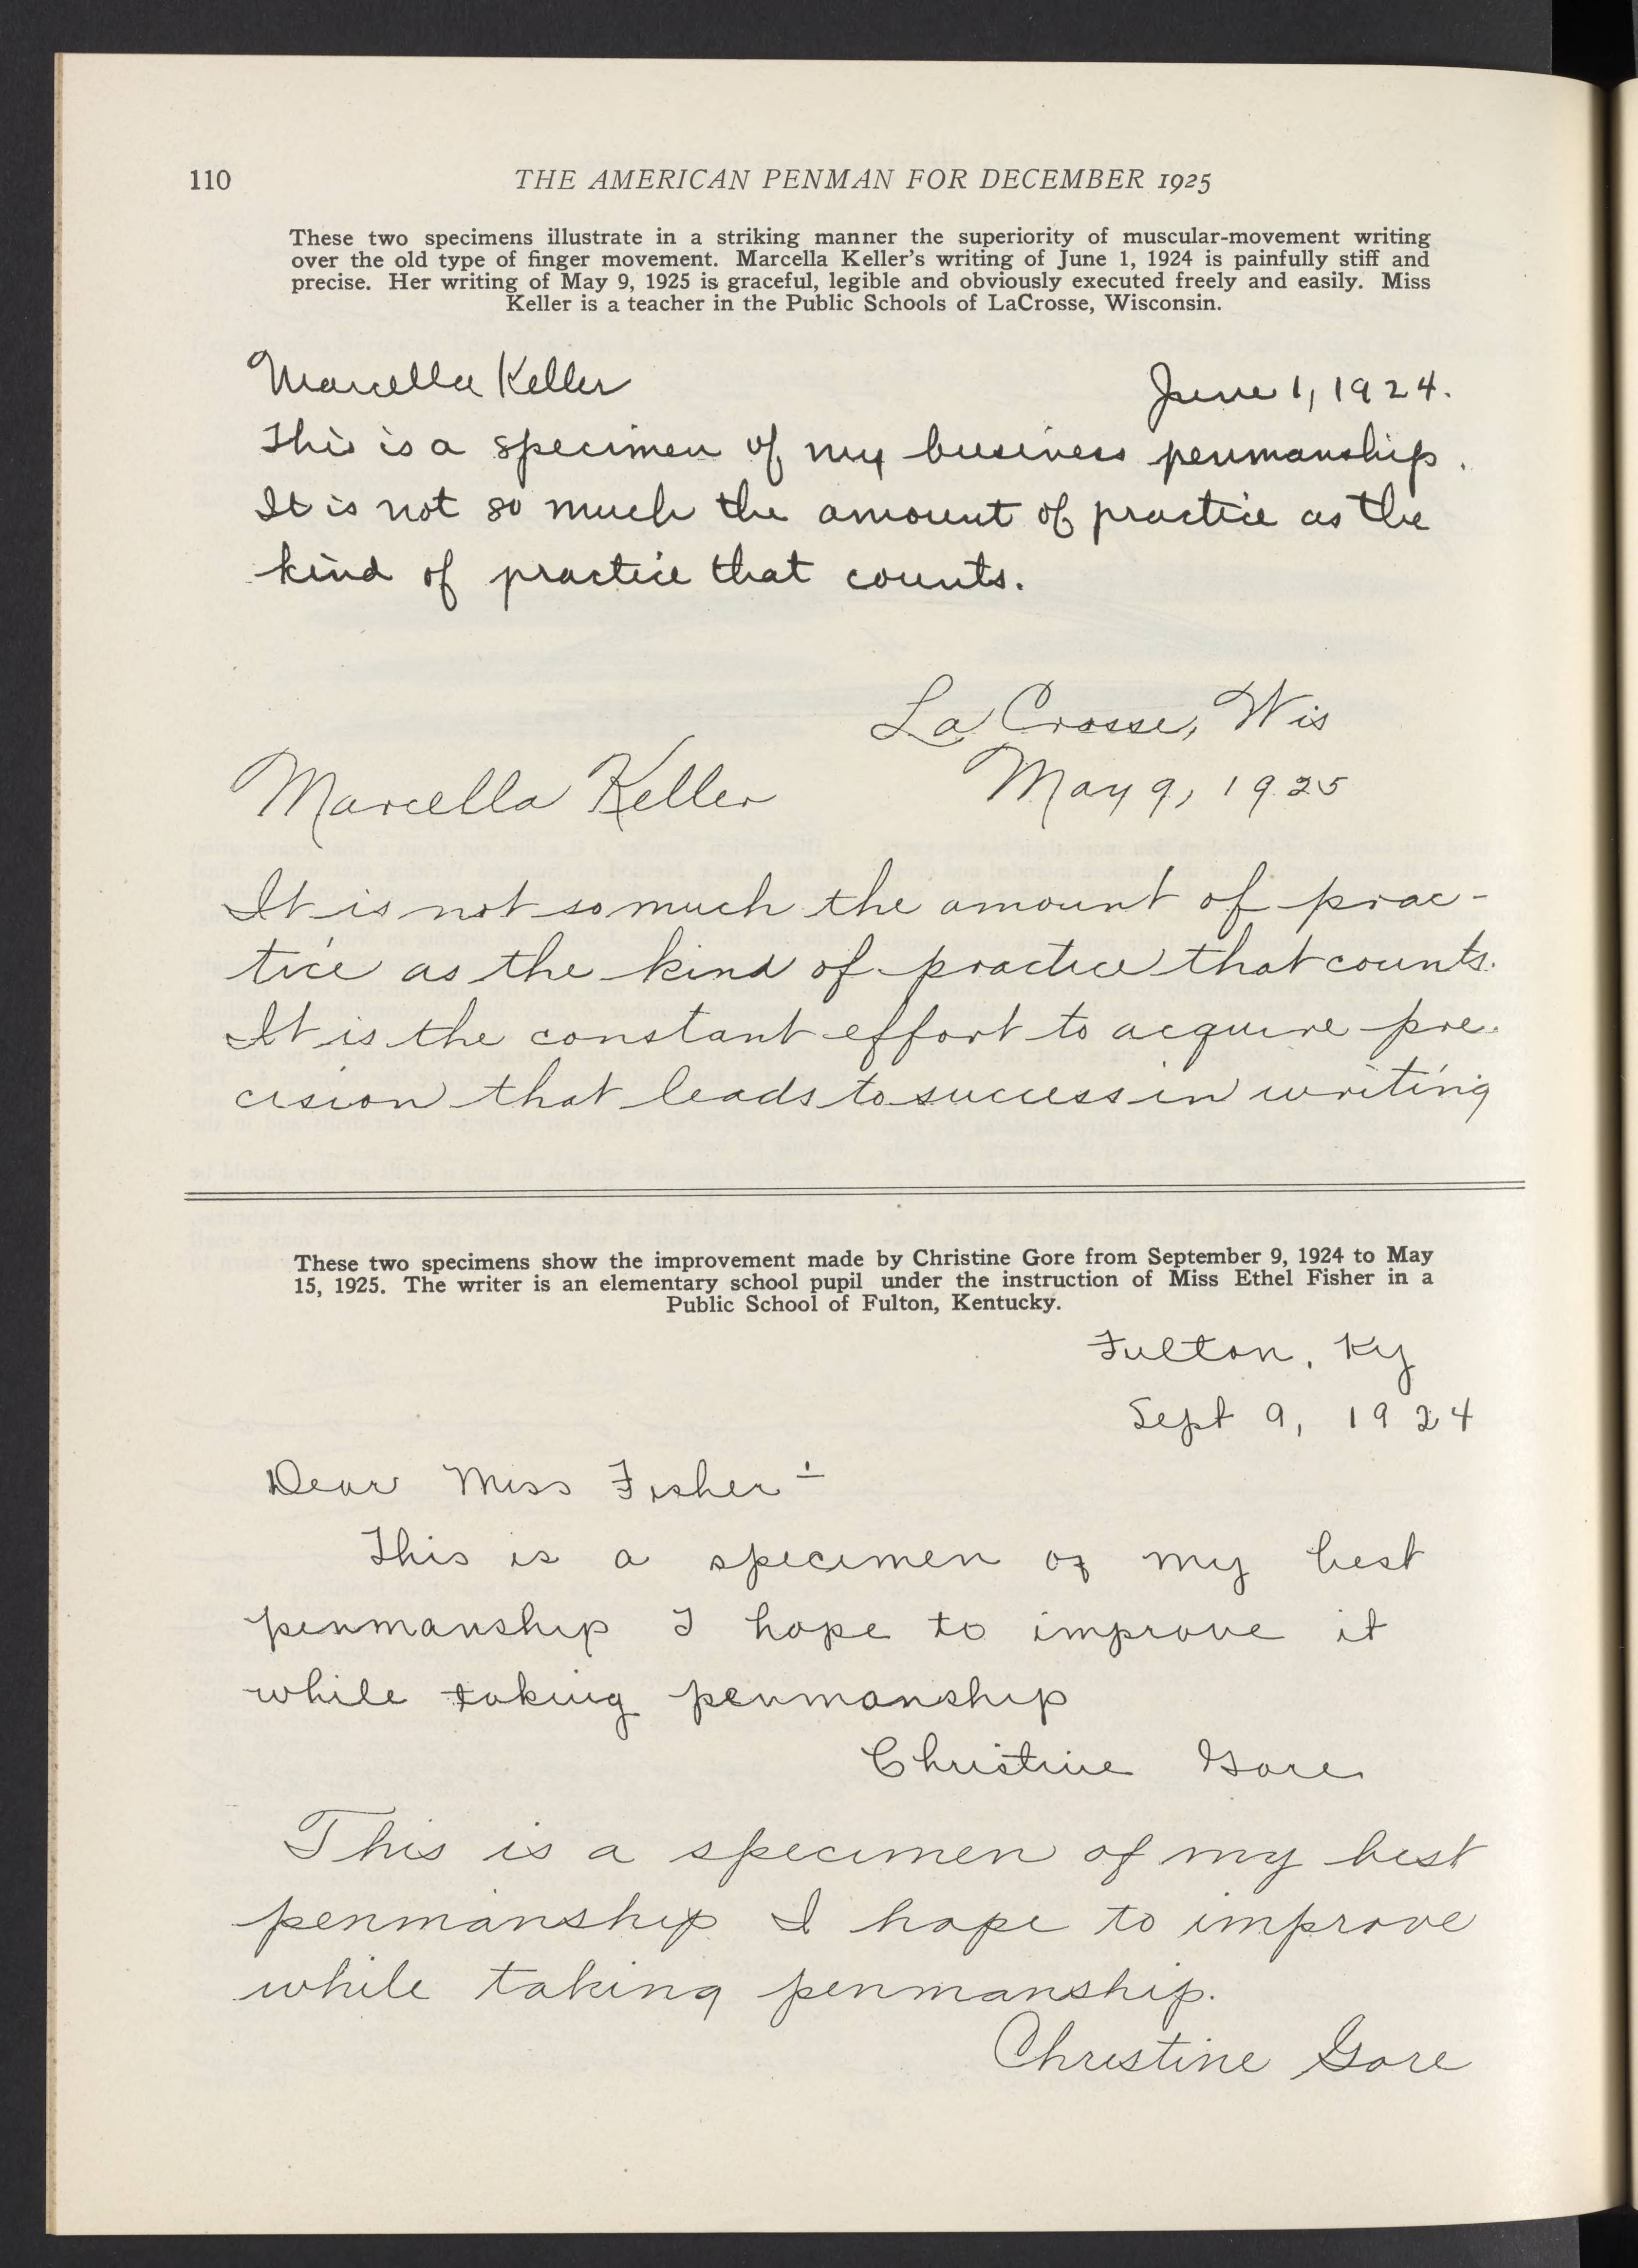 110
THE AMERICAN PENMAN FOR DECEMBER 1925
These two specimens illustrate in a striking manner the superiority of muscular-movement writing
over the old type of finger movement. Marcella Keller's writing of June 1, 1924 is painfully stiff and
precise. Her writing of May 9, 1925 is graceful, legible and obviously executed freely and easily. Miss
Keller is a teacher in the Public Schools of LaCrosse, Wisconsin.
Marcella Keller June 1, 1924.
This is a specimen of my business penmanship.
It is not so much the amount of practice as the
kind of practice that counts.
La Crosse, Wis
Marcella Keller May 9, 1925
It is not so much the amount of prac-
tice as the kind of practice that counts.
It is the constant effort to acquire pre-
cision that leads to success in writing
These two specimens show the improvement made by Christine Gore from September 9, 1924 to May
15, 1925. The writer is an elementary school pupil under the instruction of Miss Ethel Fisher in a
Public School of Fulton, Kentucky.
Fulton, Ky
Sept 9, 1924
Dear Miss Fisher -
This is a specimen of my best
penmanship I hope to improve it
while taking penmanship
Christine Gore
This is a specimen of my best
penmanship I hope to improve
while taking penmanship.
Christine Gore